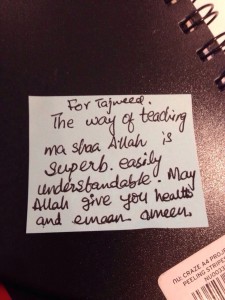 For Tajweed.
The way of teaching
ma shaa Allah is
superb. easily
understandable. May
Allah give you health
and emaan ameen.
nu: CRAZE A4 PROJ
PEELING STRIPES
NU0033